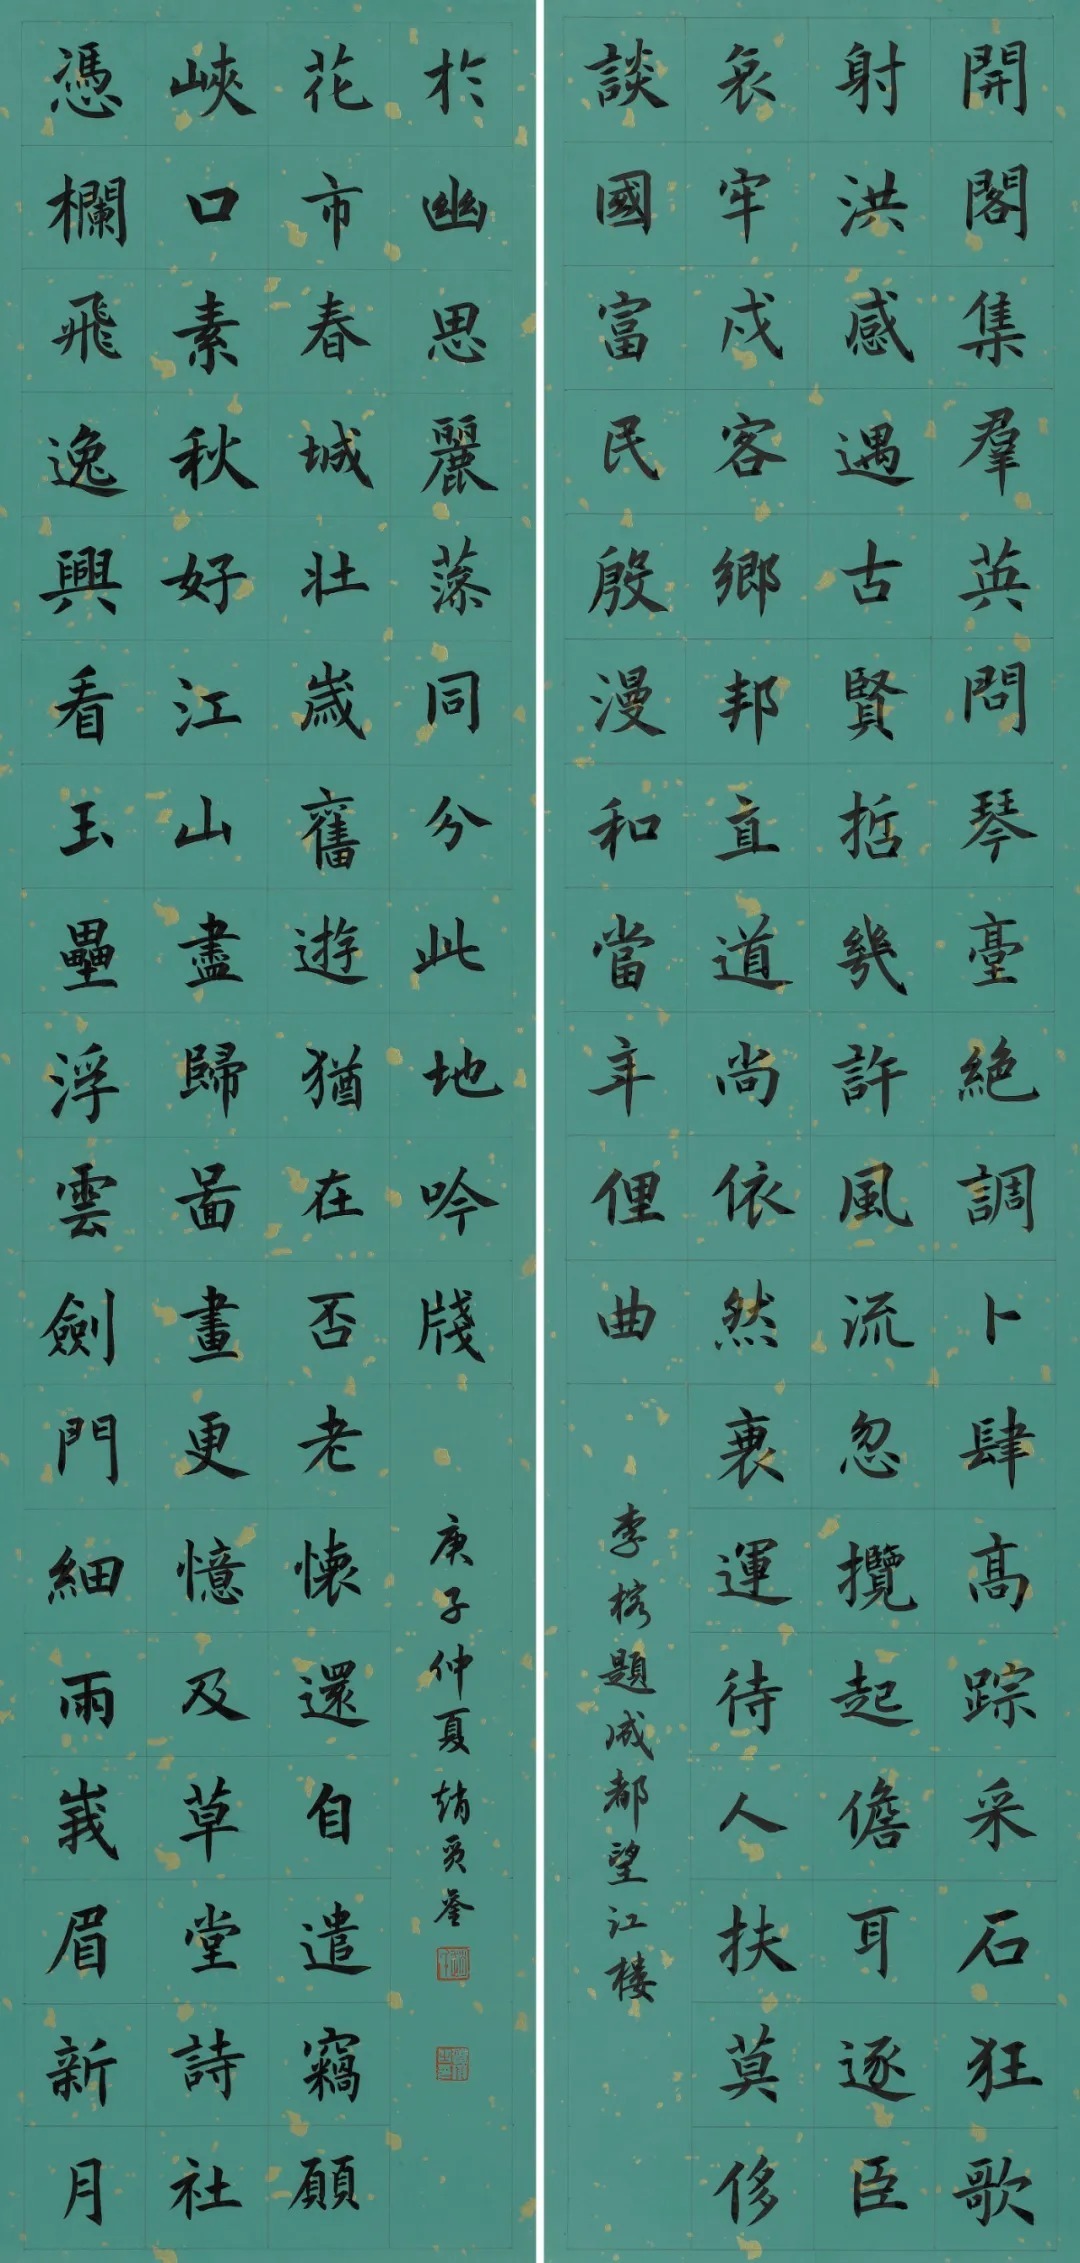 開閣集羣英問琴臺絕調卜肆高踪采石狂歌
射洪感遇古賢哲幾許風流忽攬起儋耳逐臣
哀牢戍客鄉邦直道尚依然衰運待人扶莫侈
談國富民殷漫和當年俚曲
李榕題成都望江楼
憑欄飛逸興看玉壘浮雲劍門細雨峩眉新月
峽口素秋好江山盡歸啚畫更憶及草堂詩社
花市春城壯歲舊遊猶在否老懷還自遣竊願
於幽思麗藻同分此地吟牋
庚子仲夏趙